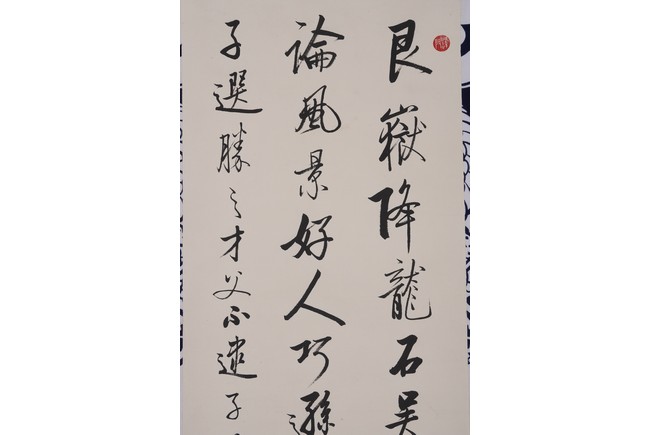 艮嶽降龍石吴
論風景好人巧遜
子選勝之才父不逮子